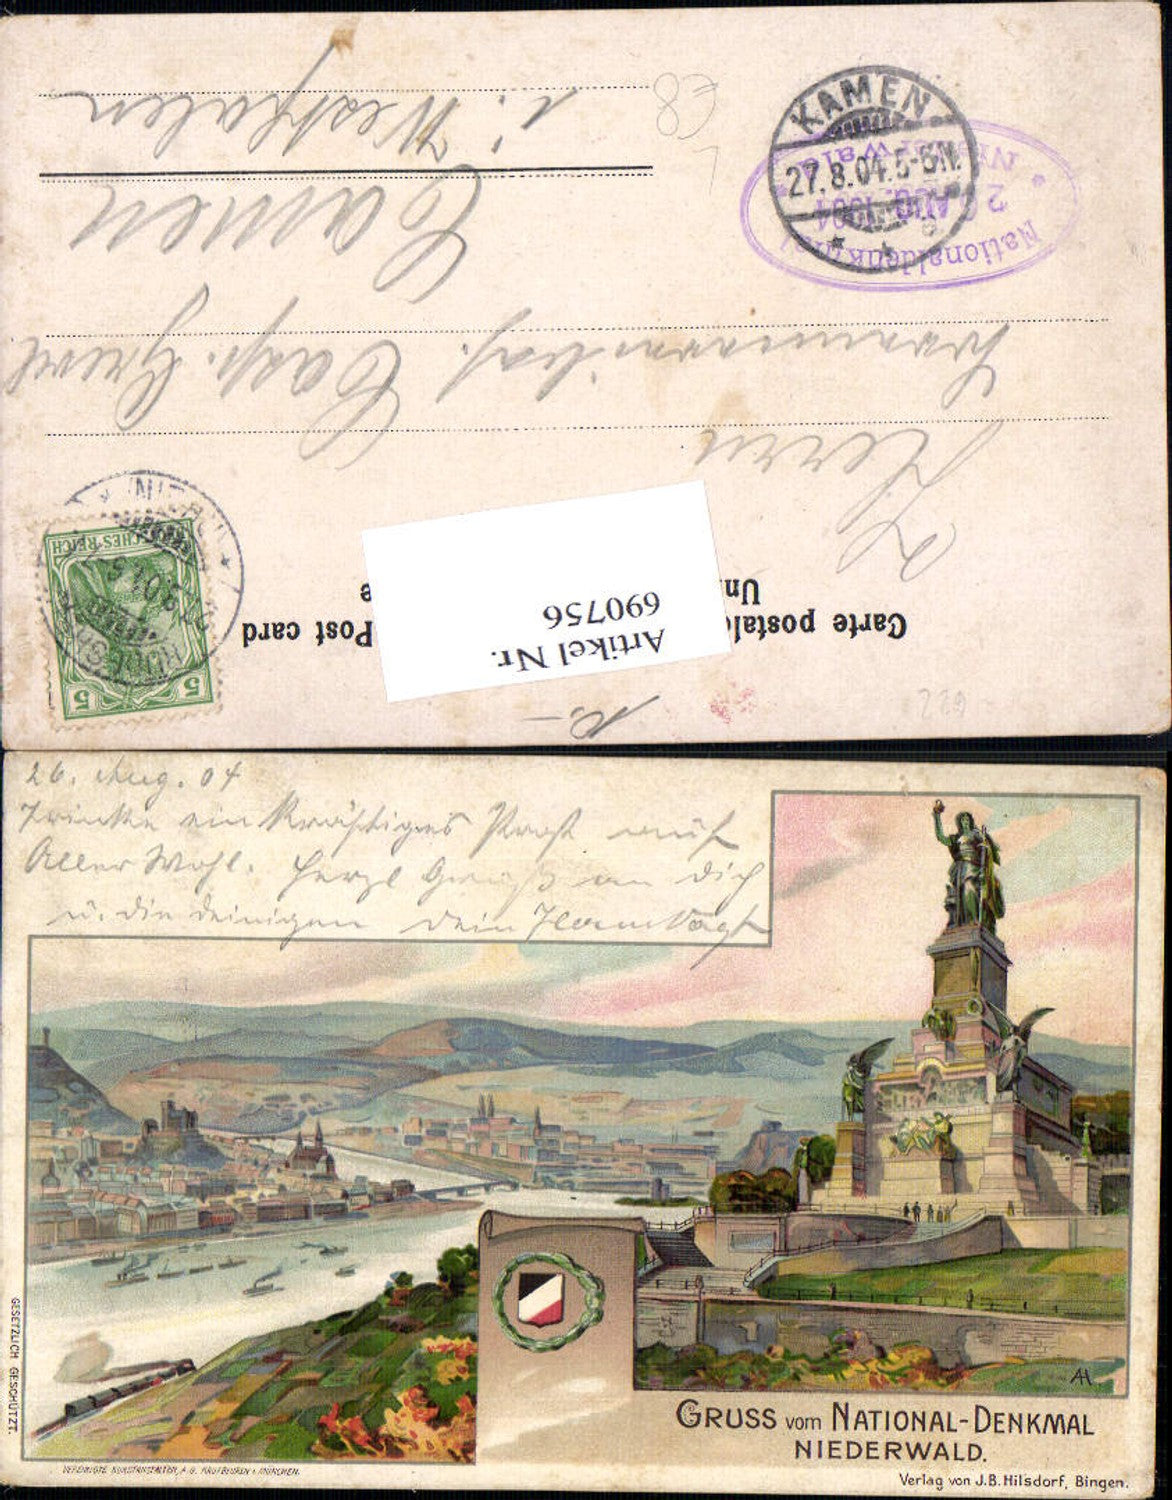 i. Westfalen
Camen
Casp.
Herrn
KAMEN
27.8.04.5-6N.
Nationaldenkmal
Niederwald
26 AUG. 1904
DEUTSCHES REICH
5
5
Carte postale
Post card
Artikel Nr.
690756
26. Aug. 04
Trinke ein kräftiges Prost auf
Aller Wohl. Herzl Gruß an Dich
u. die deinigen Dein
GESETZLICH GESCHÜTZT.
AH
GRUSS VOM NATIONAL-DENKMAL
NIEDERWALD.
VEREINIGTE KUNSTANSTALTEN, A.G. KAUFBEUREN u. MÜNCHEN.
Verlag von J.B. Hilsdorf, Bingen.